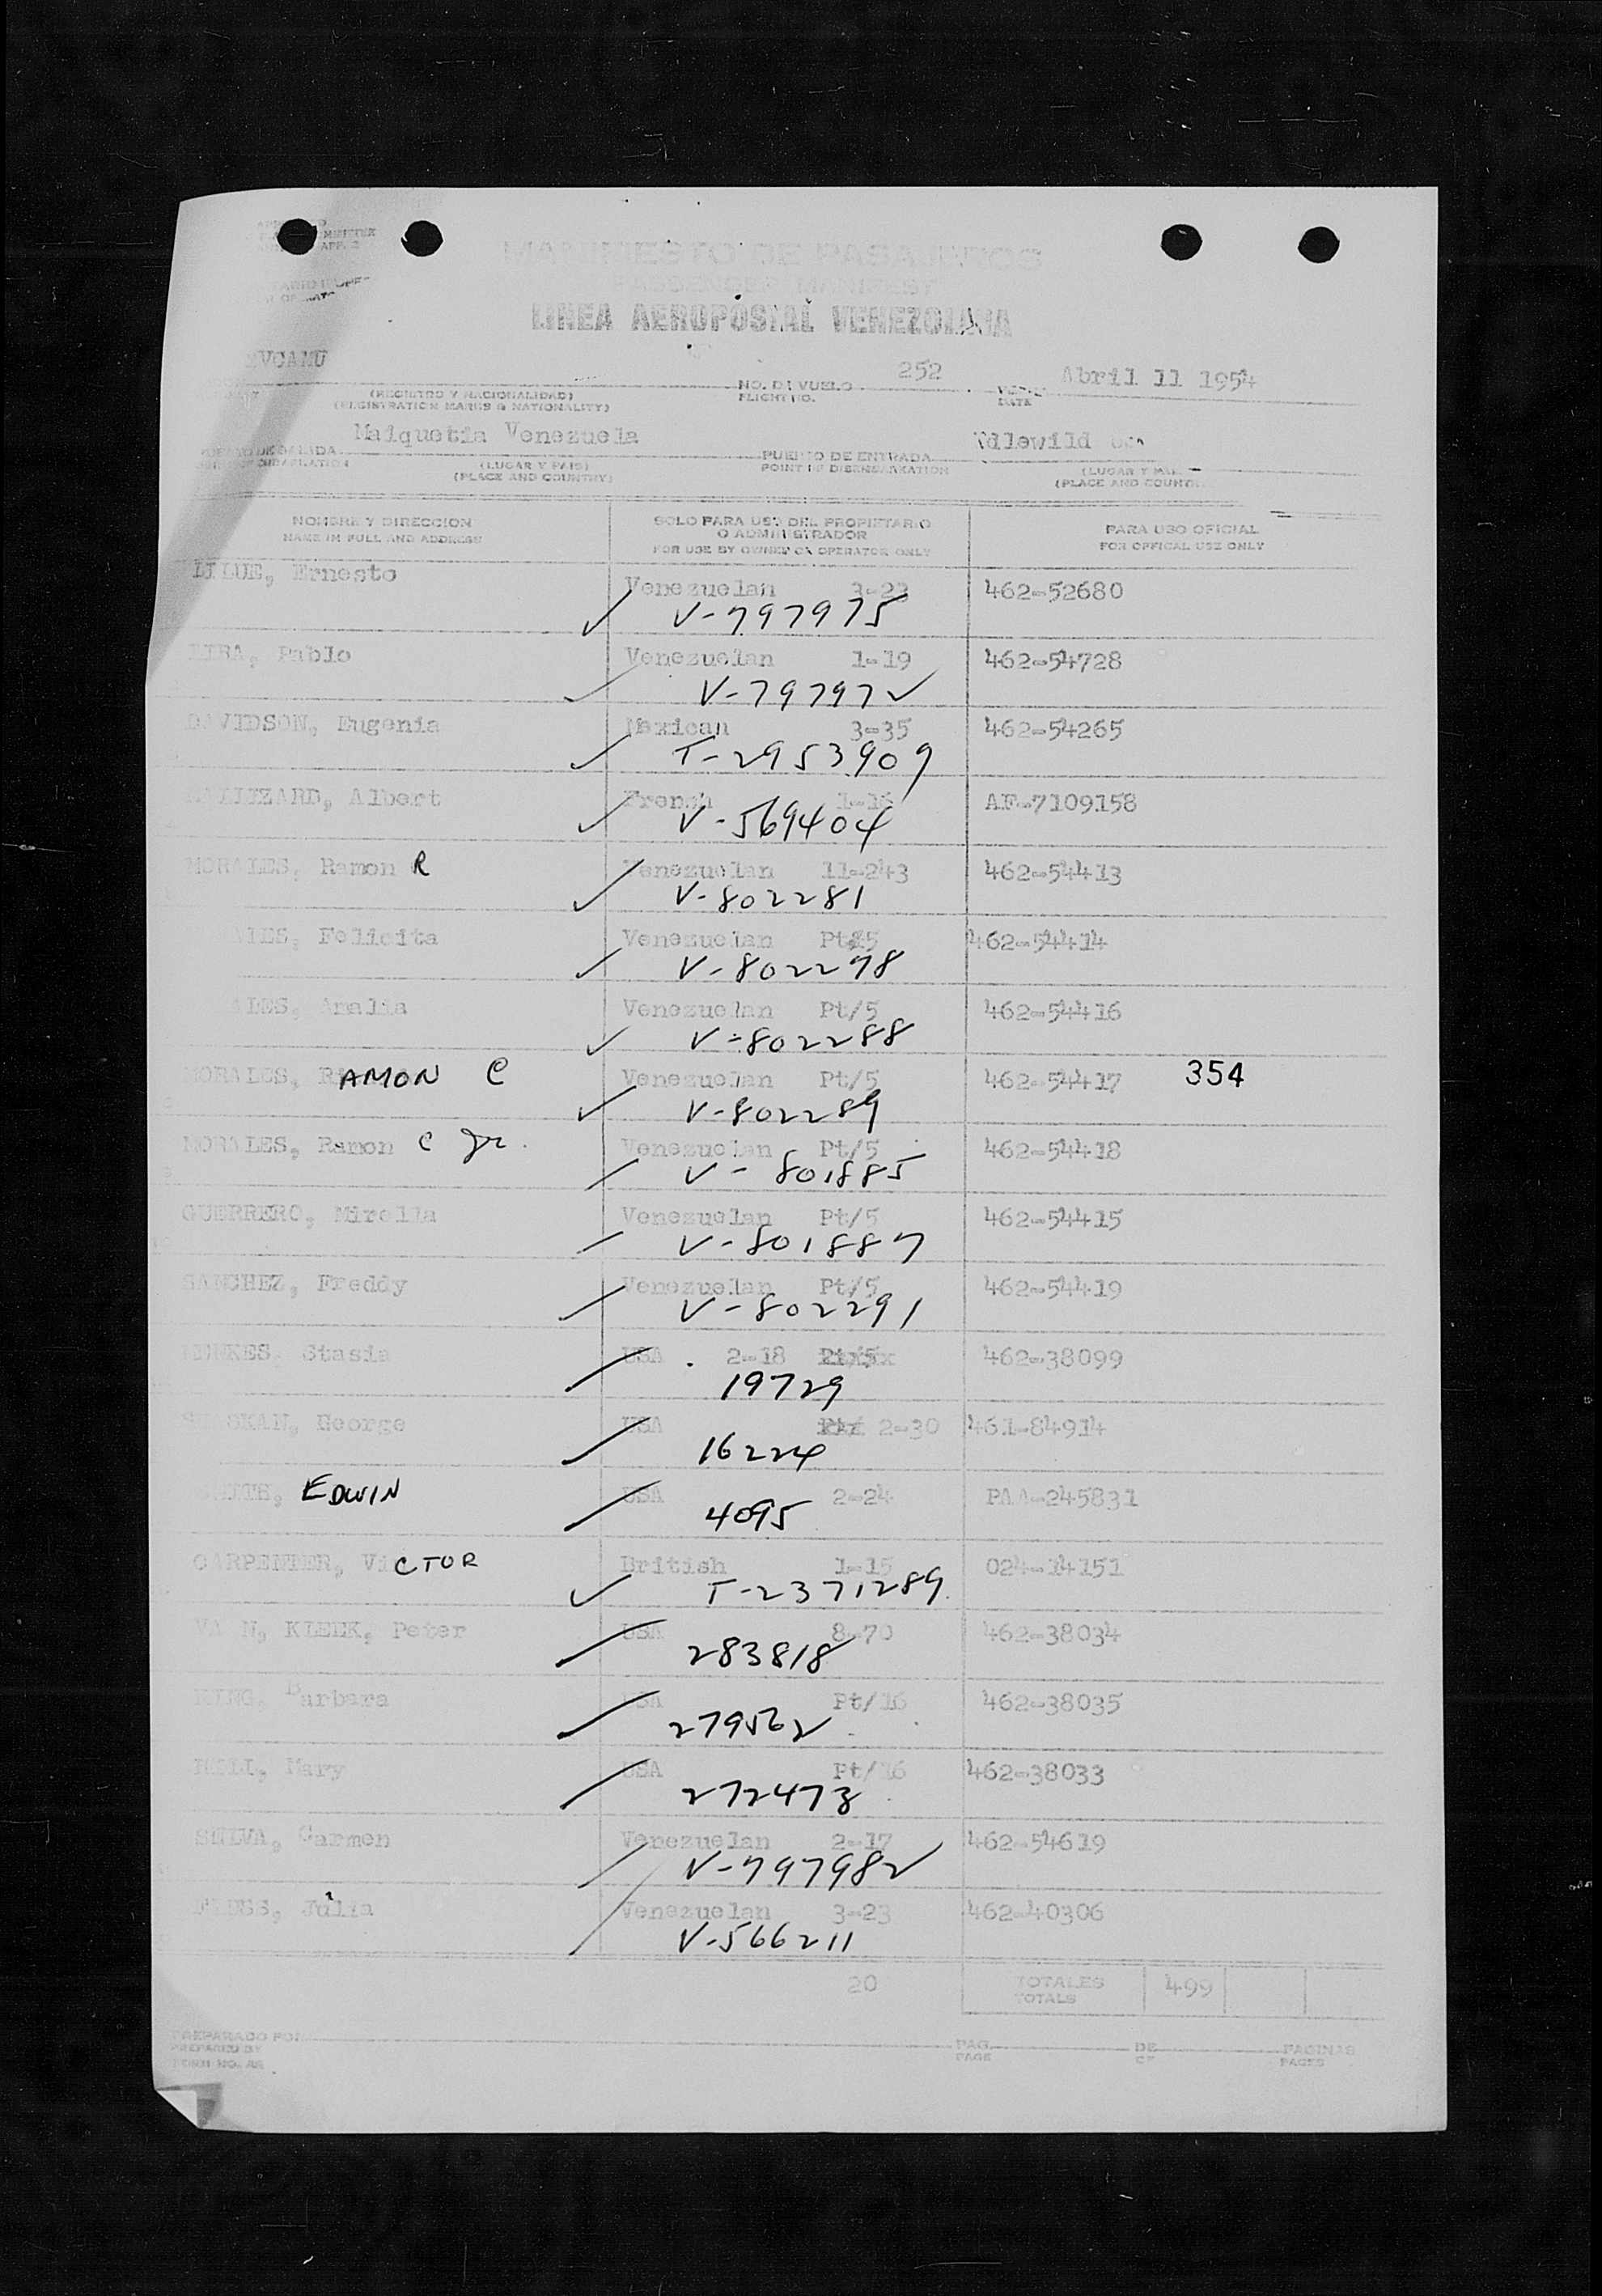 MANIFIESTO DE PASAJEROS
PASSENGER MANIFEST
LINEA AEROPOSTAL VENEZOLANA
YVCAMU 252 Abril 11 1954
(REGISTRO Y NACIONALIDAD) NO. DE VUELO
(REGISTRATION MARKS & NATIONALITY) FLIGHT NO. DATE
Maiquetia Venezuela Idlewild
PUERTO DE ENTRADA
(LUGAR Y PAIS) POINT OF DISEMBARKATION (LUGAR Y
(PLACE AND COUNTRY) (PLACE AND
NOMBRE Y DIRECCION SOLO PARA USO DEL PROPIETARIO PARA USO OFICIAL
NAME IN FULL AND ADDRESS O ADMINISTRADOR FOR OFFICAL USE ONLY
FOR USE BY OWNER OR OPERATOR ONLY
Ernesto Venezuelan 3-23 462-52680
✓ V-797975
Pablo Venezuelan 1-19 462-54728
✓ V-797972
DAVIDSON, Eugenia Mexican 3-35 462-54265
✓ T-2953909
Albert French 1-16 AF-7109158
✓ V-569404
MORALES, Ramon R Venezuelan 11-243 462-54413
✓ V-802281
Felicita Venezuelan Pt/5 462-54414
✓ V-802278
Amalia Venezuelan Pt/5 462-54416
✓ V-802288
MORALES, RAMON C Venezuelan Pt/5 462-54417 354
✓ V-802289
MORALES, Ramon C Jr. Venezuelan Pt/5 462-54418
✓ V-801885
GUERRERO, Mirella Venezuelan Pt/5 462-54415
✓ V-801887
SANCHEZ, Freddy Venezuelan Pt/5 462-54419
✓ V-802291
Stasia USA 2-18 462-38099
✓ 19729
George USA 2-30 461-84914
✓ 16224
EDWIN USA 2-24 PAA-245831
✓ 4095
CARPENTER, VICTOR British 1-15 024-14151
✓ T-2371289
VA N, KLEEK, Peter USA 8-70 462-38034
✓ 283818
KING, Barbara USA Pt/16 462-38035
✓ 279562
Mary USA Pt/16 462-38033
✓ 272473
SELVA, Carmen Venezuelan 2-17 462-54619
✓ V-797982
Julia Venezuelan 3-23 462-40306
V-566211
20 TOTALES 499
TOTALS
PREPARADO POR PAG. DE PAGINAS
PREPARED BY PAGE OF PAGES
FORM NO.